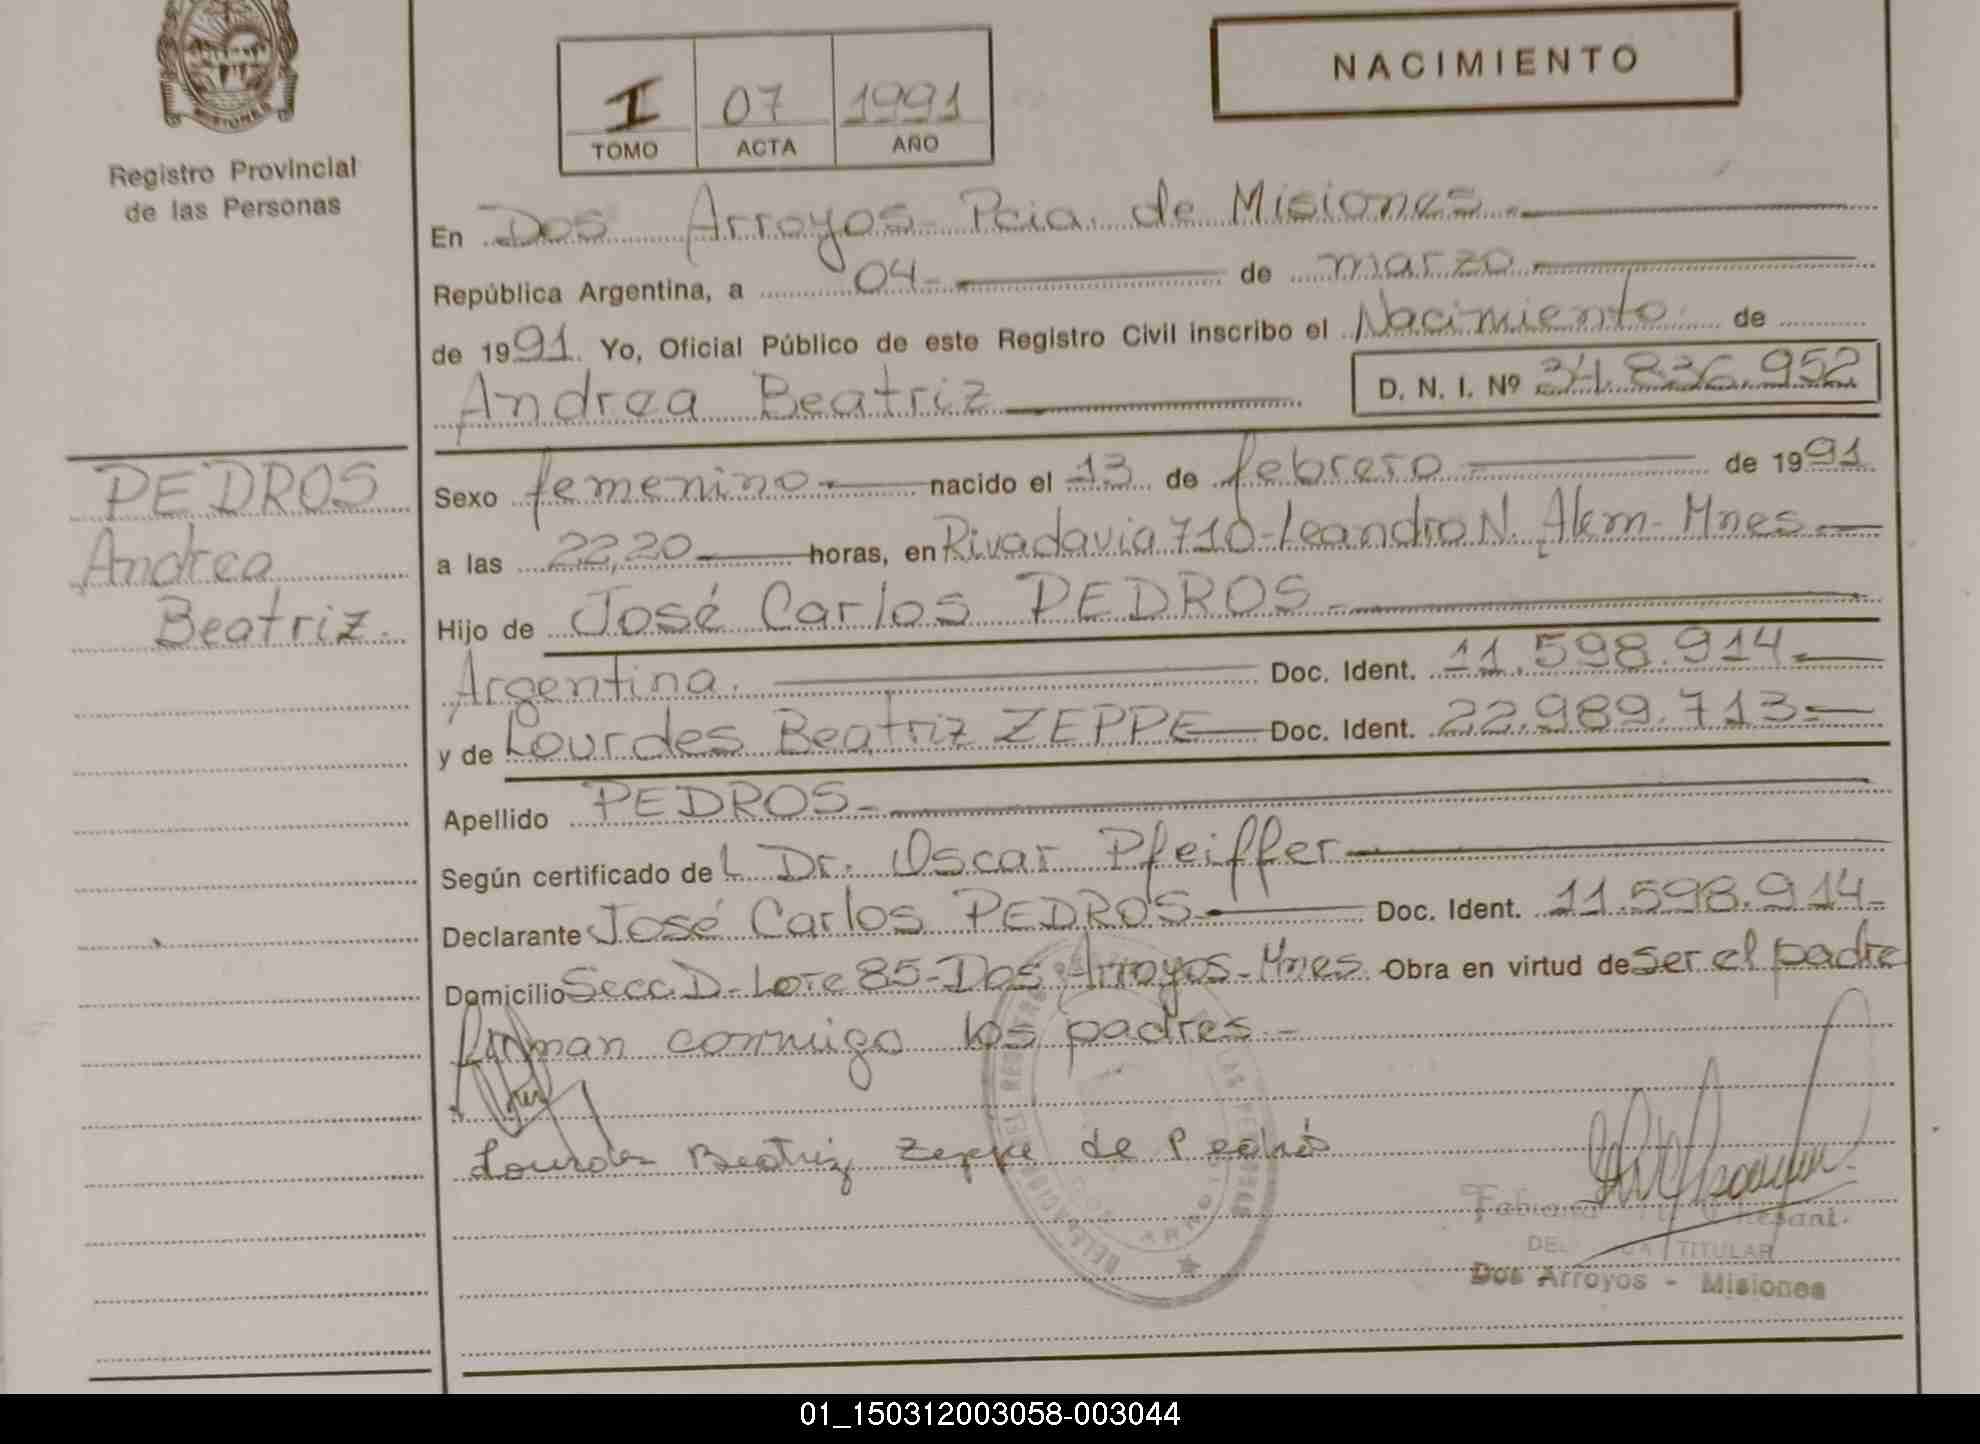 MISIONES
Registro Provincial
de las Personas
I 07 1991
TOMO ACTA AÑO
NACIMIENTO
En Dos Arroyos - Pcia. de Misiones
República Argentina, a 04 de marzo
de 1991. Yo, Oficial Público de este Registro Civil inscribo el Nacimiento de
Andrea Beatriz D. N. I. Nº 34.836.952
PEDROS
Andrea
Beatriz.
Sexo femenino nacido el 13 de febrero de 1991
a las 22,20 horas, en Rivadavia 710-Leandro N. Alem-Mnes
Hijo de José Carlos PEDROS
Argentina. Doc. Ident. 11.598.914
y de Lourdes Beatriz ZEPPE Doc. Ident. 22.989.713
Apellido PEDROS
Según certificado de L Dr. Oscar Pfeiffer
Declarante José Carlos PEDROS Doc. Ident. 11.598.914
Domicilio Secc. D-Lote 85-Dos Arroyos-Mnes. Obra en virtud de ser el padre
Firman conmigo los padres.-
Lourdes Beatriz Zeppe de Pedrós
Fabiana
TITULAR
Dos Arroyos - Misiones
01_150312003058-003044